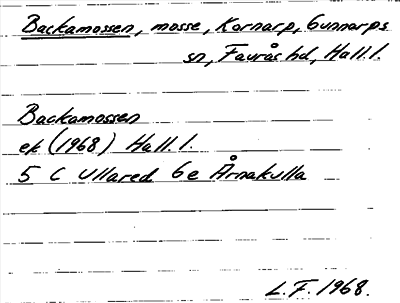 Backamossen, mosse, Kornarp, Gunnarps
sn, Faurås hd, Hall. l.
Backamossen
ek (1968) Hall. l.
5 C Ullared 6e Årnakulla
L.F. 1968.